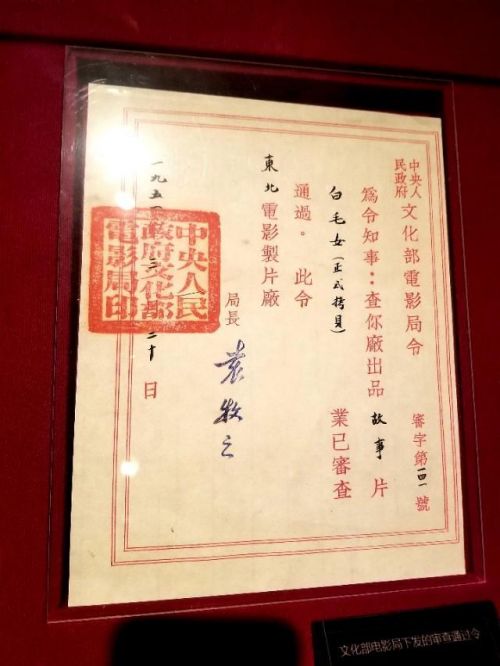 中央人民政府 文化部電影局令 審字第一四一號
爲令知事：查你廠出品 故事 片
白毛女(正式拷貝) 業已審查
通過。此令
東北電影製片廠
局長 袁牧之
一九五一 二十日
中央人民
政府文化部
電影局印
文化部电影局下发的审查通过令